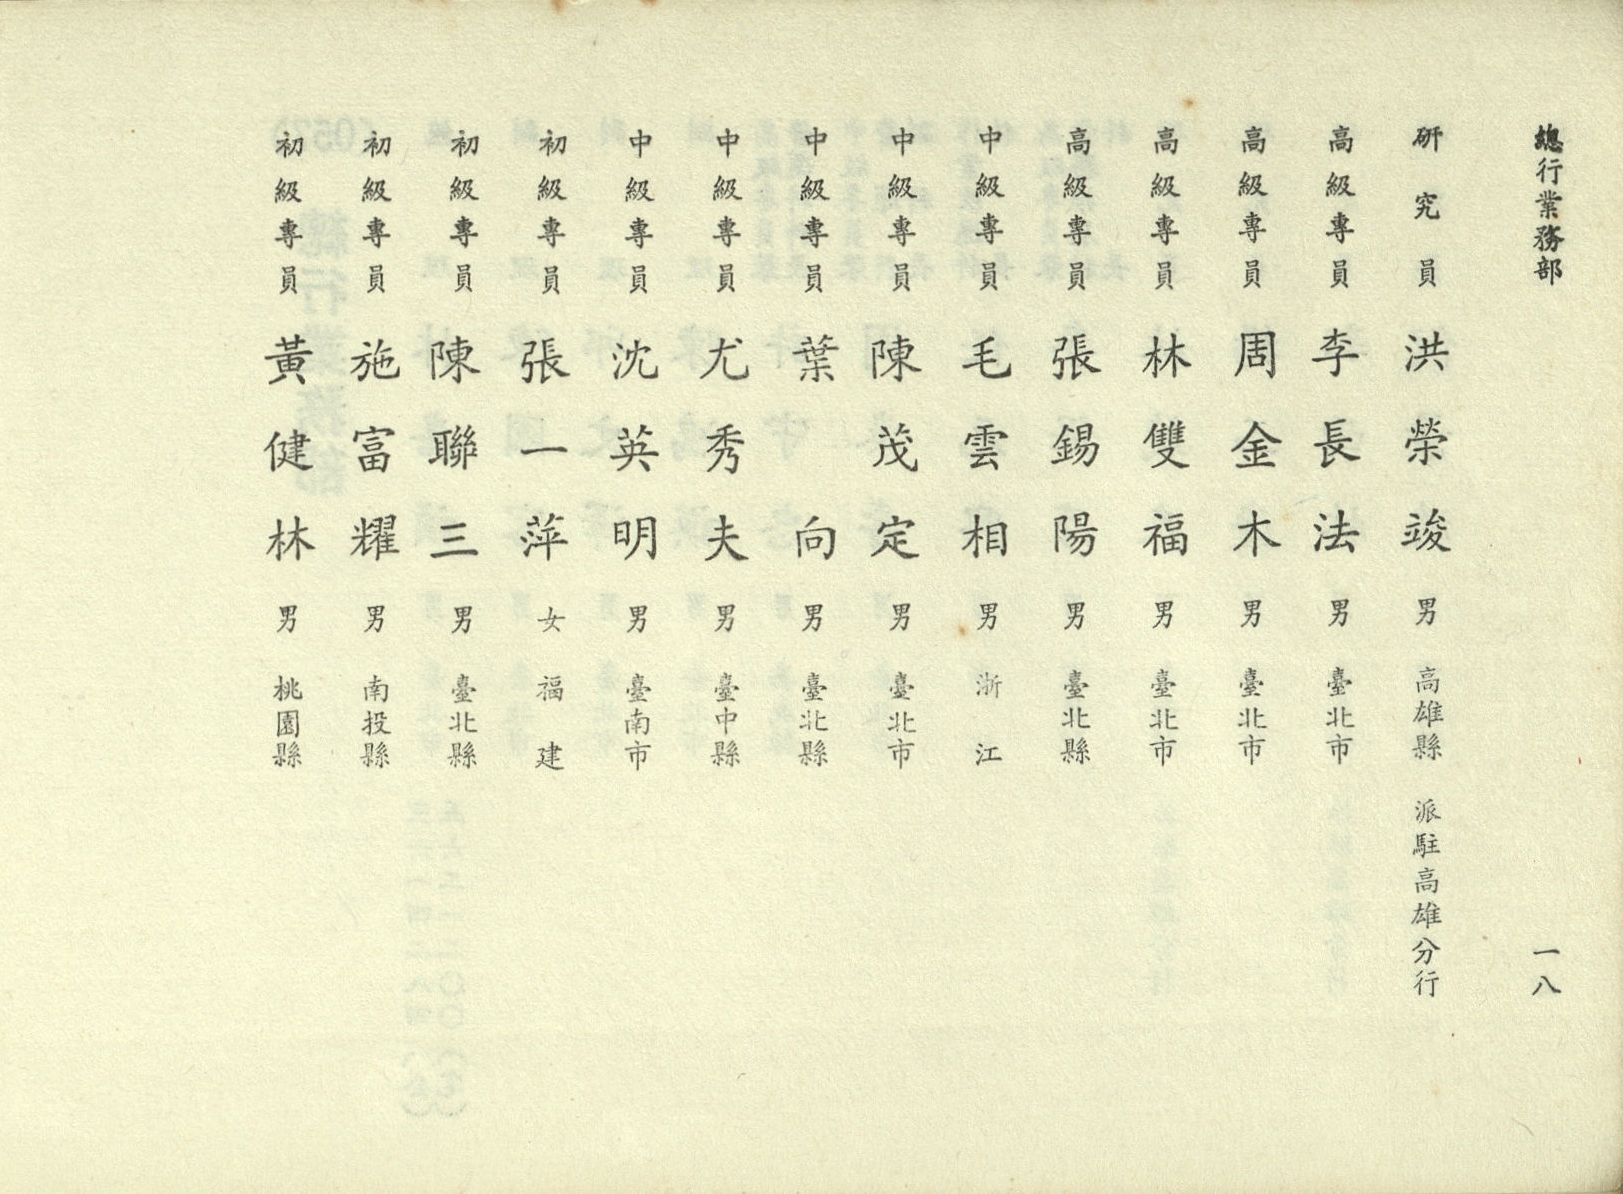 總行業務部 一八
研究員 洪榮竣 男 高雄縣 派駐高雄分行
高級專員 李長法 男 臺北市
高級專員 周金木 男 臺北市
高級專員 林雙福 男 臺北市
高級專員 張錫陽 男 臺北縣
中級專員 毛雲相 男 浙江
中級專員 陳茂定 男 臺北市
中級專員 葉向 男 臺北縣
中級專員 尤秀夫 男 臺中縣
中級專員 沈英明 男 臺南市
初級專員 張一萍 女 福建
初級專員 陳聯三 男 臺北縣
初級專員 施富耀 男 南投縣
初級專員 黃健林 男 桃園縣